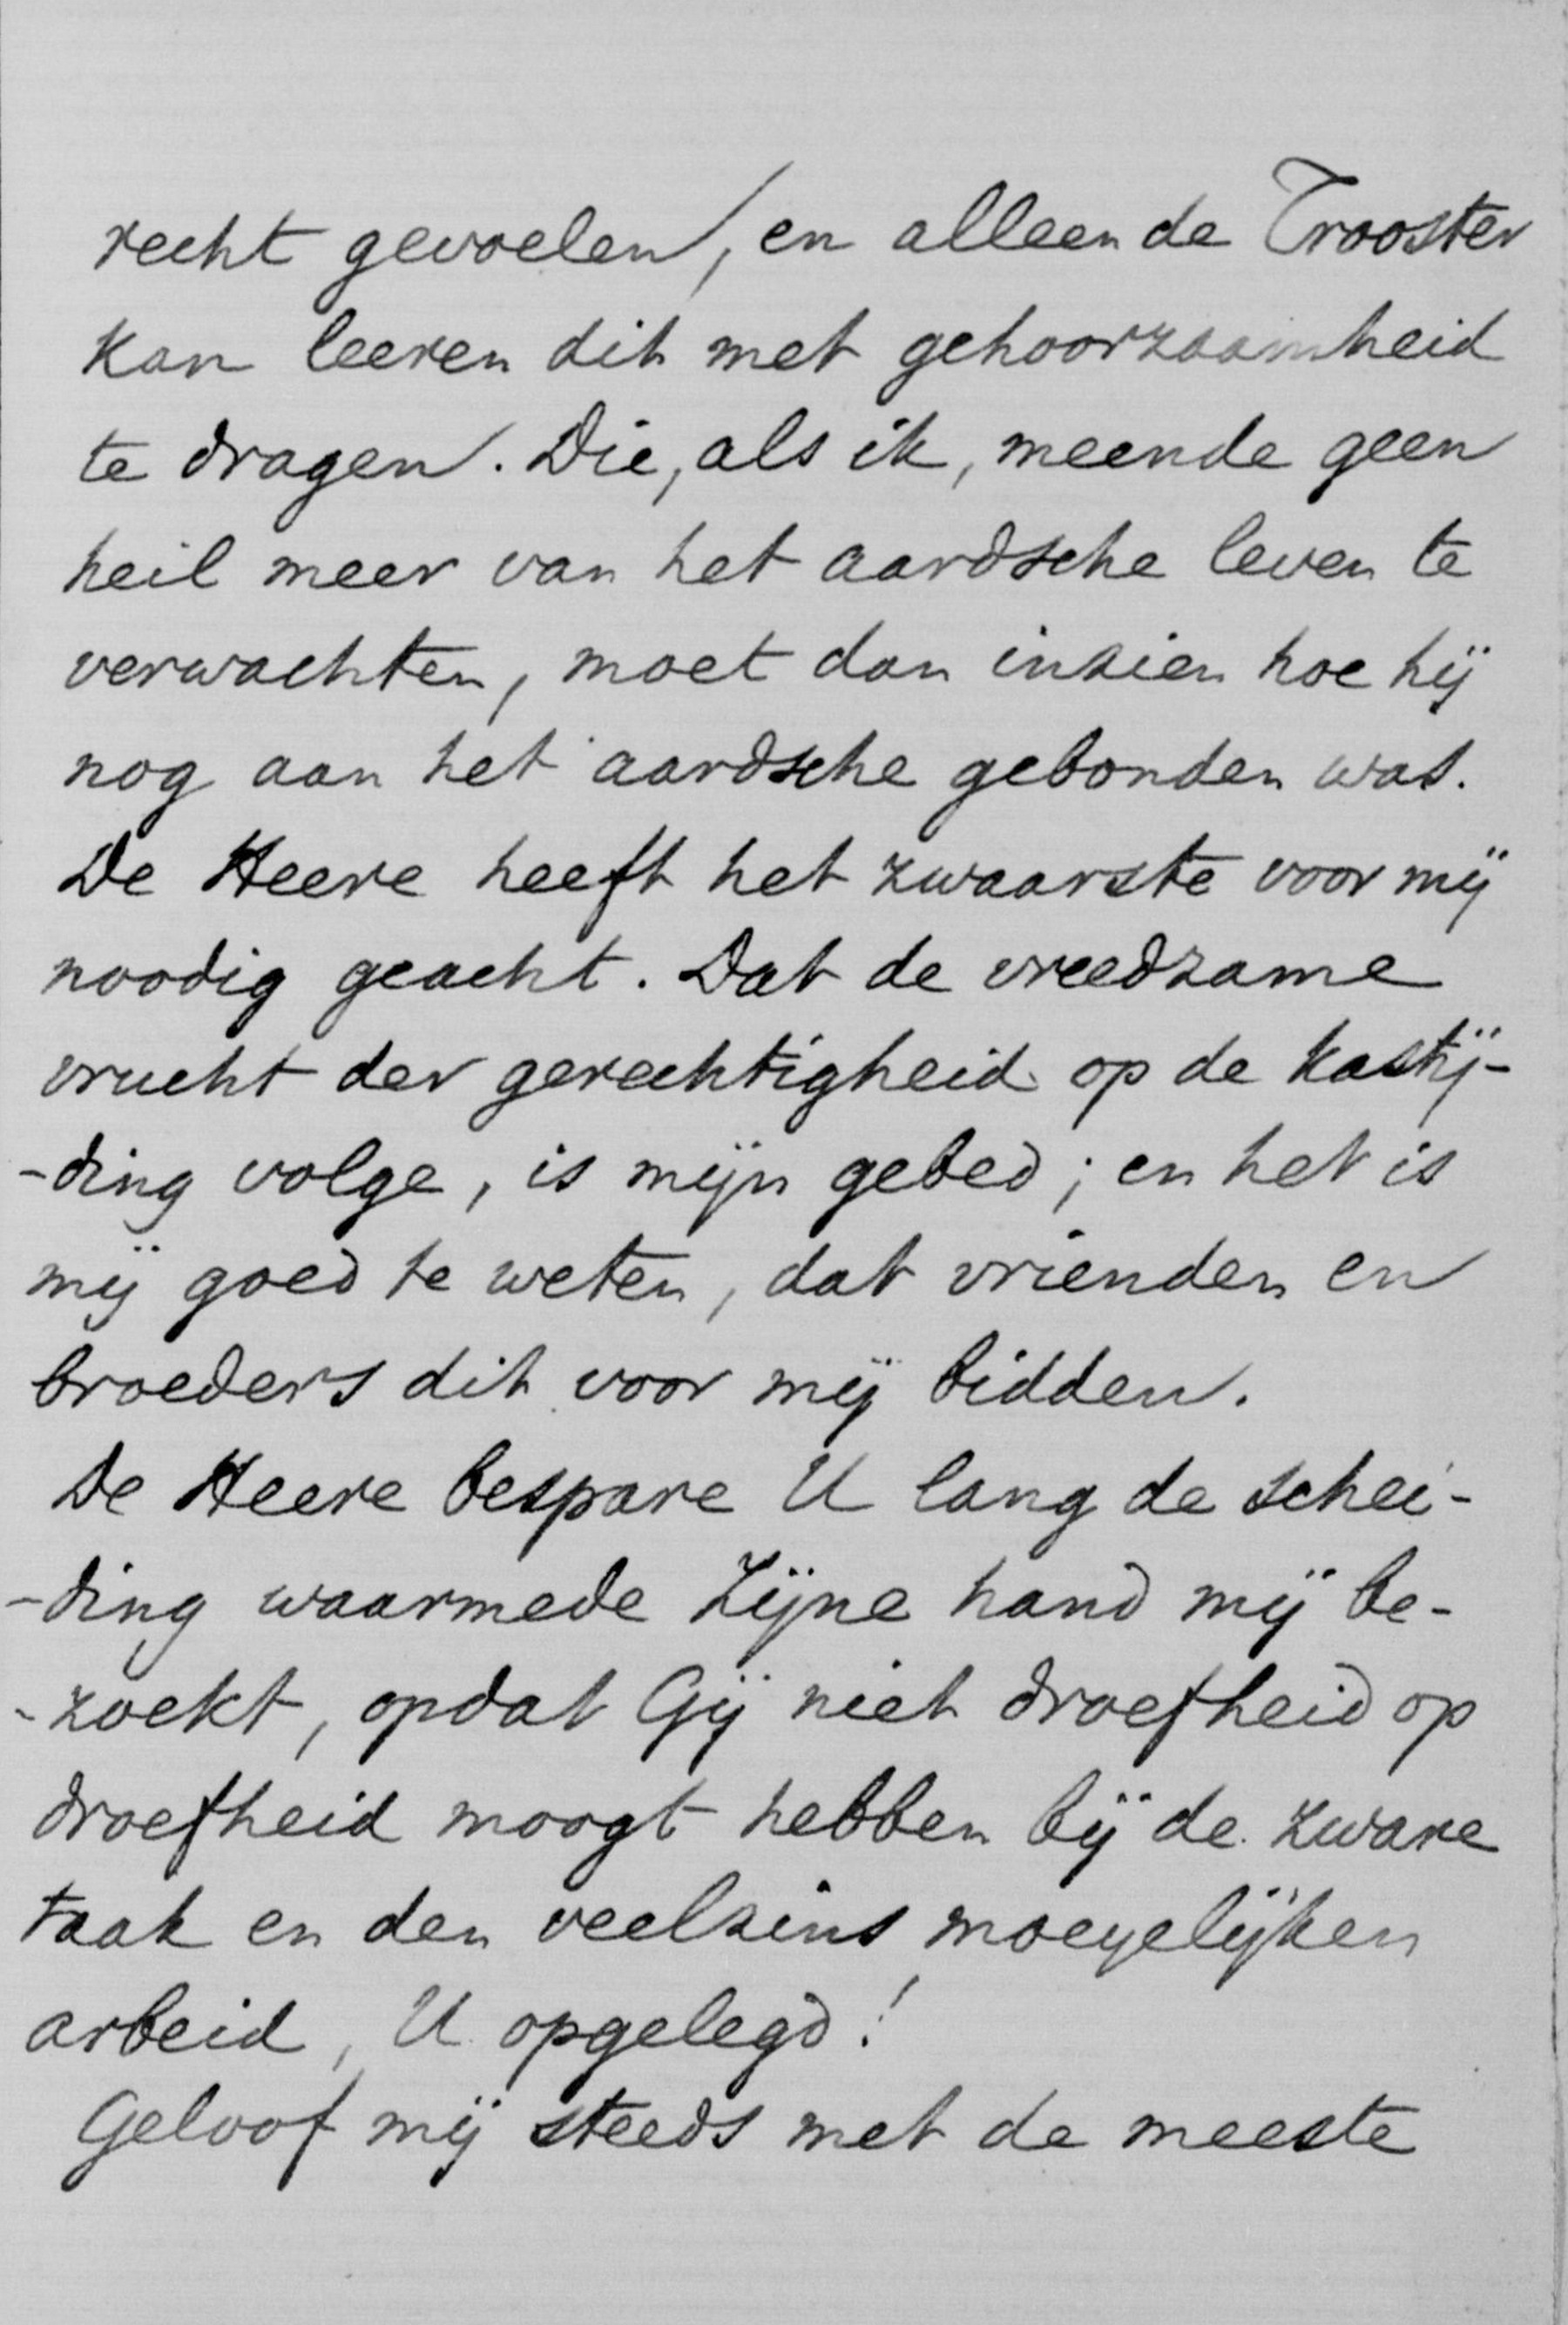 recht gevoelen, en alleen de Trooster
kan leeren dit met gehoorzaamheid
te dragen. Die, als ik, meende geen
heil meer van het aardsche leven te
verwachten, moet dan inzien hoe hij
nog aan het aardsche gebonden was.
De Heere heeft het zwaarste voor mij
noodig geacht. Dat de vreedzame
vrucht der gerechtigheid op de kastij-
-ding volge, is mijn gebed; en het is
mij goed te weten, dat vrienden en
broeders dit voor mij bidden.
De Heere bespare U lang de schei-
-ding waarmede Zijne hand mij be-
-zoekt, opdat Gij niet droefheid op
droefheid moogt hebben bij de zware
taak en den veelzins moeyelijken
arbeid, U opgelegd!
Geloof mij steeds met de meeste